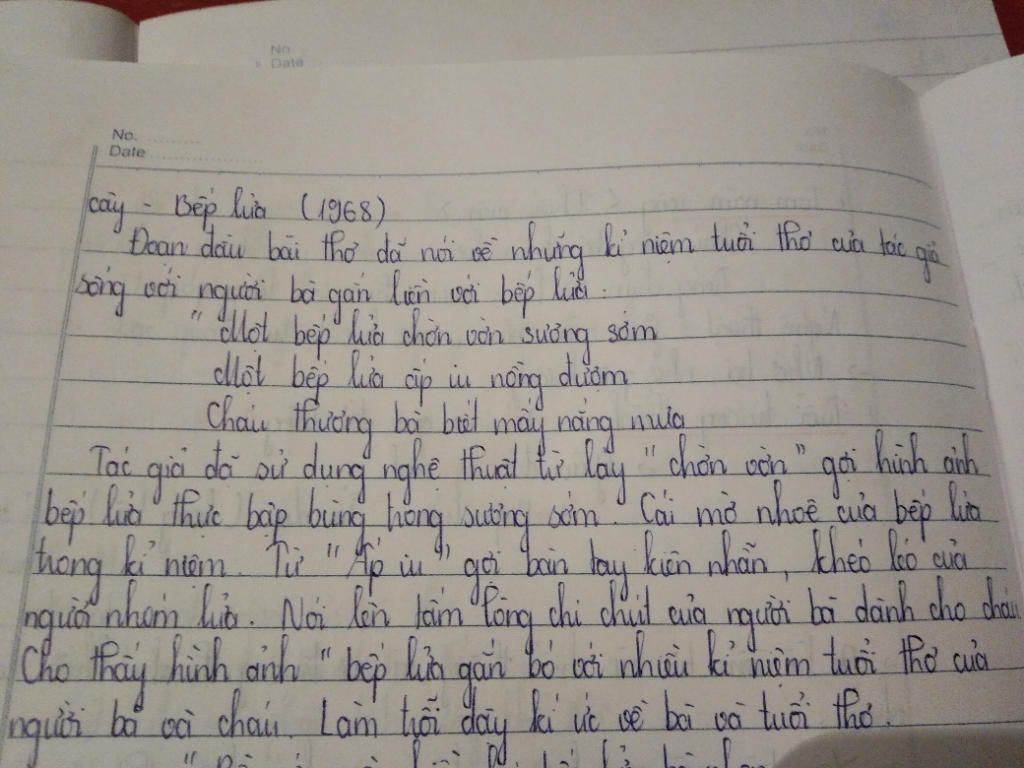 No
Date
No.
Date
cây - Bếp lửa (1968)
Đoạn đầu bài thơ đã nói về những kỉ niệm tuổi thơ của tác giả
sống với người bà gắn liền với bếp lửa:
"Một bếp lửa chờn vờn sương sớm
Một bếp lửa ấp iu nồng đượm
Cháu thương bà biết mấy nắng mưa
Tác giả đã sử dụng nghệ thuật từ láy "chờn vờn" gợi hình ảnh
bếp lửa thực bập bùng trong sương sớm. Cái mờ nhoè của bếp lửa
trong kỉ niệm. Từ "Ấp iu" gợi bàn tay kiên nhẫn, khéo léo của
người nhóm lửa. Nói lên tấm lòng chi chút của người bà dành cho cháu
Cho thấy hình ảnh "bếp lửa gắn bó với nhiều kỉ niệm tuổi thơ của
người bà và cháu. Làm trỗi dậy kí ức về bà và tuổi thơ.